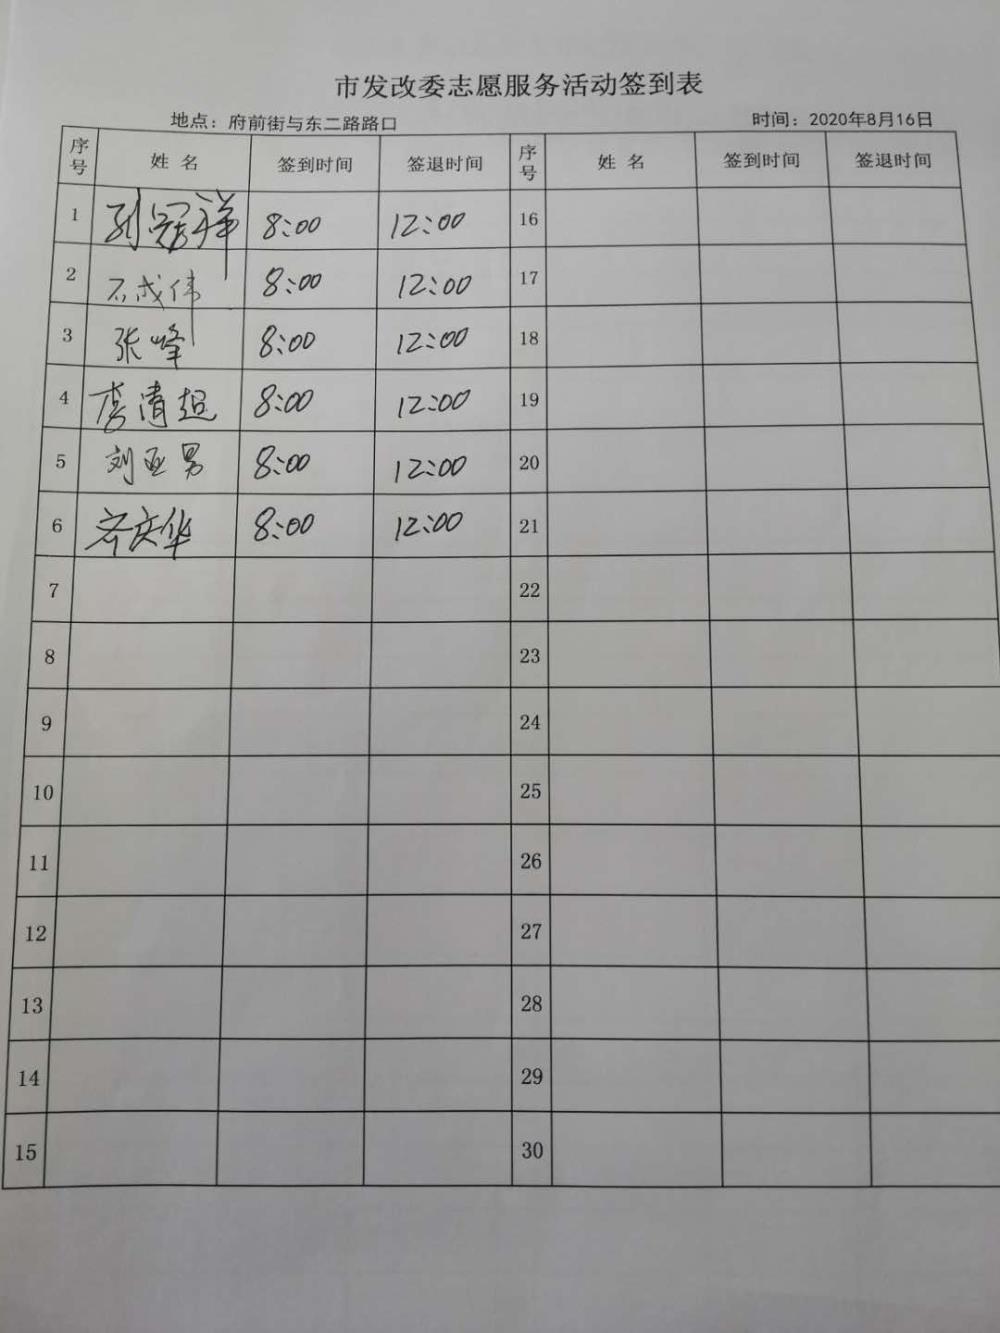 市发改委志愿服务活动签到表
地点：府前街与东二路路口 时间：2020年8月16日
序号 姓名 签到时间 签退时间 序号 姓名 签到时间 签退时间
1 刘冠祥 8:00 12:00 16
2 石成伟 8:00 12:00 17
3 张峰 8:00 12:00 18
4 李清超 8:00 12:00 19
5 刘亚男 8:00 12:00 20
6 齐庆华 8:00 12:00 21
7 22
8 23
9 24
10 25
11 26
12 27
13 28
14 29
15 30